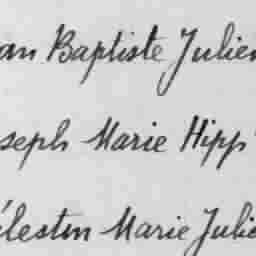 an Baptiste Julien
seph Marie Hipp
élestin Marie Julie